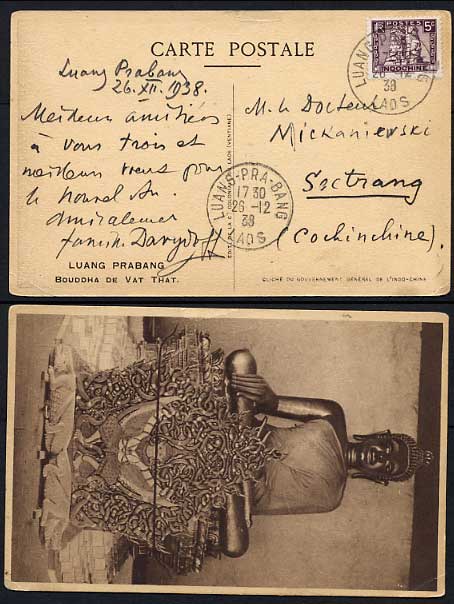 CARTE POSTALE
POSTES
5c
INDOCHINE
LUANG-PRA-BANG
38
LAOS
Luang Prabang
26.XII.1938.
Meilleures amitiés
à vous trois et
meilleurs vœux pour
le Nouvel An.
Amicalement
Davydoff
LUANG-PRA-BANG
17 30
26 -12
38
LAOS
M. le Docteur
Mickaniewski
Soctrang
(Cochinchine).
LUANG PRABANG
BOUDDHA DE VAT THAT.
CLICHÉ DU GOUVERNEMENT GÉNÉRAL DE L'INDO-CHINE